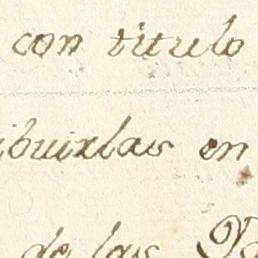 con titulo
ibuirlas en
de las P